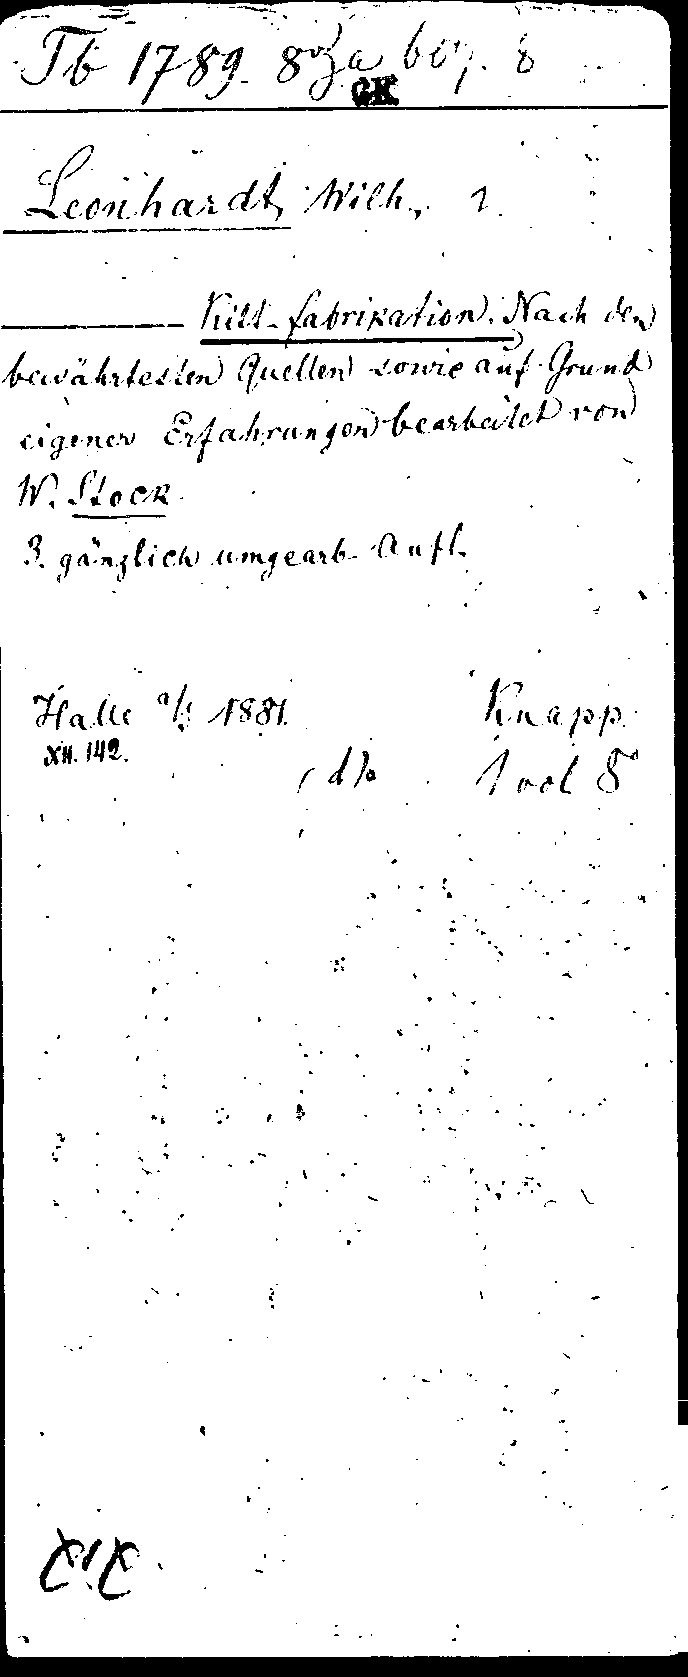 Tb 1789. 8
GK
Leonhardt, Wilh., 1.
Kitt-fabrikation. Nach den
bewährtesten Quellen sowie auf Grund
eigener Erfahrungen bearbeitet von
W. Stock
3. gänzlich umgearb. Aufl.
Halle a/s 1881. Knapp.
XII. 142.
1 vol 8°
XIX